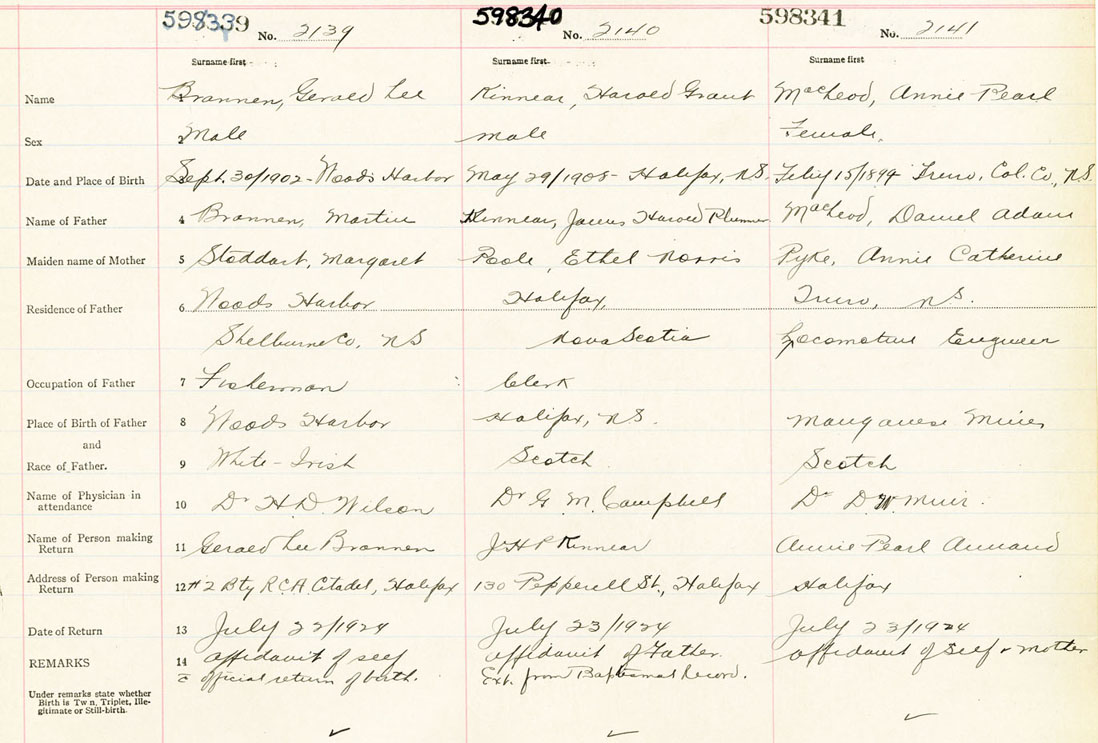 598339 No. 2139 598340 No. 2140 598341 No. 2141
Surname first Surname first Surname first
Name Brannen, Gerald Lee Kinnear, Harold Grant MacLeod, Annie Pearl
Sex 2 Male male Female.
Date and Place of Birth 3 Sept. 30/1902 - Woods Harbor May 29/1908 - Halifax, N.S. Feby 15/1899 Truro, Col. Co, N.S.
Name of Father 4 Brannen, Martin Kinnear, James Harold Plummer MacLeod, Daniel Adam
Maiden name of Mother 5 Stoddart, Margaret Poole, Ethel Norris Pyke, Annie Catherine
Residence of Father 6 Woods Harbor Halifax, Truro, N.S.
Shelburne Co, NS Nova Scotia Locomotive Engineer
Occupation of Father 7 Fisherman Clerk
Place of Birth of Father 8 Woods Harbor Halifax, N.S. Manganese Mines
and
Race of Father. 9 White - Irish Scotch Scotch
Name of Physician in
attendance 10 Dr H.D. Wilson Dr G. M. Campbell Dr D. W. Muir.
Name of Person making
Return 11 Gerald Lee Brannen J H P Kinnear Annie Pearl Annand
Address of Person making
Return 12 #2 Bty R.C.A. Citadel, Halifax 130 Pepperell St., Halifax Halifax
Date of Return 13 July 22/1924 July 23/1924 July 23/1924
REMARKS 14 affidavit of self affidavit of Father. affidavit of Self & mother
c official return of birth. Ext. from Baptismal Record.
Under remarks state whether
Birth is Twin, Triplet, Ille-
gitimate or Still-birth.